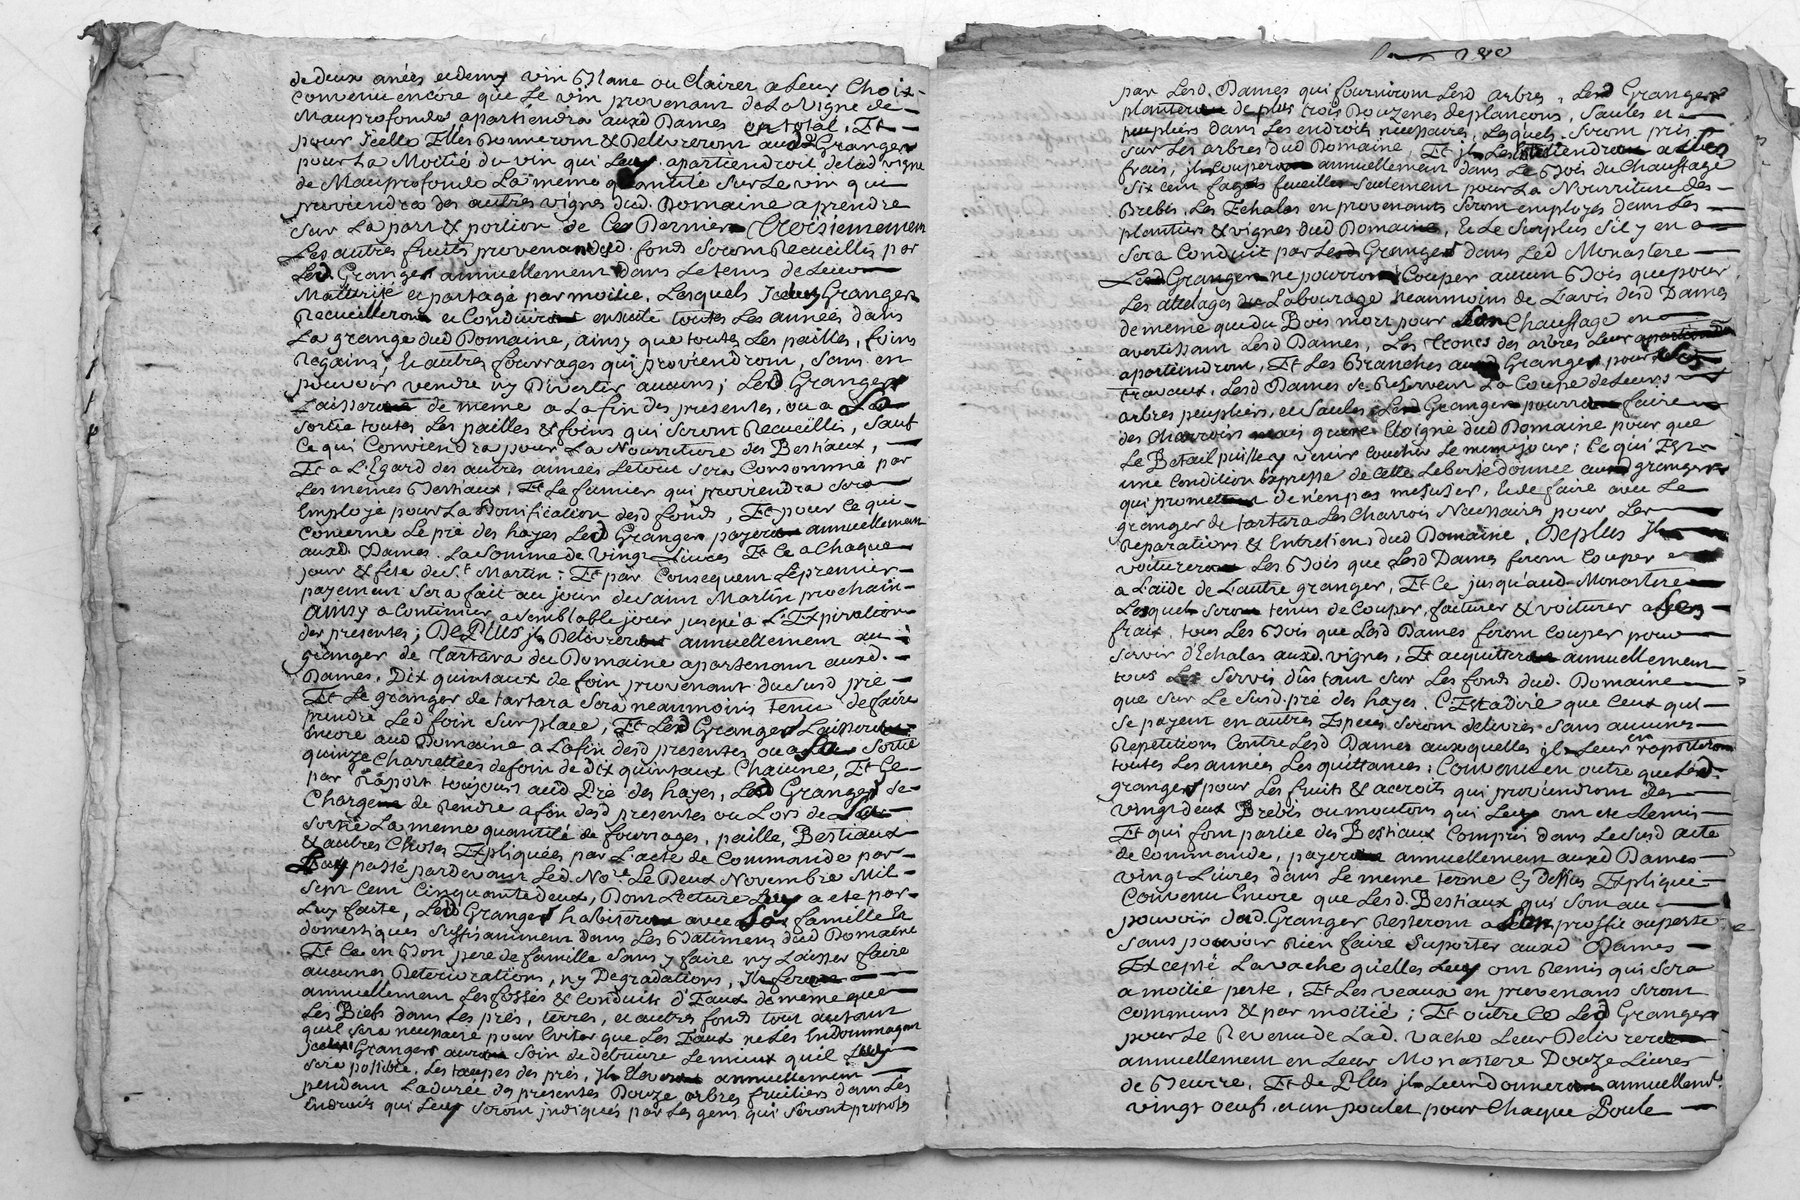 de deux anées et demy vin Blanc ou Clairet a Leur Choix -
Convenu encore que Le vin provenant de La Vigne de
Mauprofonde apartiendra auxd Dames en total, Et
pour Icelle Elles Donneront & Delivreront aud Granger
pour La Moitié du vin qui Luy apartiendroit de lad vigne
de Mauprofonde La meme quantité sur Le vin qui
proviendra des autres vignes dud. Domaine a prendre
sur La part & portion de Ces Derniers Troisiemement
Les autres fruits provenans desd. fonds seront Recueillis par
Led Granger annuellement dans Le tems de Leur
Maturité et partagé par moitié, Lesquels Granger
Recueilleront et Conduiront ensuite toutes Les années dans
La grange dud Domaine, ainsy que toutes Les pailles, foins
Regains, et autres fourrages qui proviendront, sans en
pouvoir vendre ny Divertir aucuns; Led Granger
Laissera de meme a La fin des presentes, ou a Sa
sortie toutes Les pailles & foins qui seront Recueillis, Sauf
Ce qui Conviendra pour La Nourriture des Bestiaux,
Et a L'Egard des autres années Le tout sera Consommé par
Les memes Bestiaux, Et Le fumier qui proviendra sera
Employé pour La Bonification desd fonds, Et pour Ce qui
Concerne Le pré des hayes Led Granger payera annuellement
auxd. Dames La Somme de Vingt Livres Et Ce a Chaque
jour & fête de S.t Martin; Et par Consequent Le premier
payement sera fait au jour de Saint Martin prochain
ainsy a Continuer a semblable jour jusqu'a L'Expiration
des presentes; De Plus Delivrera annuellement au
granger de Tartara du Domaine apartenant auxd.
Dames, Dix quintaux de foin provenant du susd pré
Et Le granger de tartara sera neanmoins tenu de faire
prendre Led foin sur place, Et Led Granger Laissera
Encore aud Domaine a La fin desd presentes ou a Sa Sortie
quinze Charrettées de foin de Dix quintaux Chacune, Et Ce
par Raport toujours aud Pré des hayes, Led Granger se
Charge de Rendre a fin desd presentes ou Lors de Sa
sortie La meme quantité de fourrages, paille, Bestiaux
& autres Choses Expliquées par L'acte de Commande par
Luy passé pardevant Led. No.re Le Deux Novembre Mil
sept cent Cinquante deux, Dont Lecture Luy a eté par
Luy faite, Led Granger habitera avec Sa famille Et
domestiques suffisamment dans Les Batimens dud Domaine
Et Ce en Bon pere de famille sans y faire ny Laisser faire
aucunes Deteriorations, ny Degradations, Il fera
annuellement Les fossés & Conduits d'Eaux de meme que
Les Biefs dans Les prés, terres, et autres fonds tout autant
quil sera necessaire pour Eviter que Les Eaux ne Les Endommagent
Granger aura soin de detruire Le mieux quil Luy
sera possible, Les taupes des prés, Il Elevera annuellement
pendant La durée des presentes Douze arbres fruitiers dans Les
Endroits qui Luy seront indiqués par Les gens qui seront preposés
par Lesd. Dames qui fourniront Lesd arbres, Led Granger
plantera de plus trois Douzenes de plancons, Saules et
peupliers dans Les endroits necessaires, Lesquels seront pris
sur Les arbres dud Domaine, Et il Les a Ses
frais; il Coupera annuellement dans Le Bois du Chauffage
Six cent fagots feuilles seulement pour La Nourriture des
Brebis, Les Echalas en provenants seront employés dans Les
plantiers & vignes dud Domaine, Et Le Surplus S'il y en a
sera Conduit par Led Granger dans Led Monastere
Led Granger ne pourra Couper aucun Bois que pour
Les attelages du Labourage neanmoins de L'avis desd Dames
de meme que du Bois mort pour Son Chauffage en
avertissant Lesd Dames, Les Troncs des arbres Leur
apartiendront, Et Les Branches aud Granger pour Ses
travaux, Lesd Dames se Reservent La Coupe de Leurs
arbres peupliers, et Saules; Led Granger pourra faire
des Charrois mais guere Eloigné dud Domaine pour que
Le Betail puisse y venir coucher Le meme jour; Ce qui Est
une Condition Expresse de Cette Liberté donnée aud granger
qui promet de n'en pas mesuser, Et de faire avec Le
granger de tartara Les Charrois Necessaires pour Les
Reparations & Entretiens dud Domaine, De plus Il
voiturera Les Bois que Lesd Dames feront Couper
a L'aide de L'autre granger, Et Ce jusqu'aud Monastere
Lesquels seront tenus de Couper, faiturer & voiturer a Ses
fraix tous Les Bois que Lesd Dames feront Couper pour
servir d'Echalas auxd. vignes, Et acquittera annuellement
tous Les Servis dûs tant sur Les fonds dud. Domaine
que sur Le susd. pré des hayes, C'Est a dire que Ceux qui
Se payent en autres Especes seront delivrés sans aucunes
Repetitions Contre Lesd Dames auxquelles il Leur en raportera
toutes Les années Les quittances; Convenu en outre que Led.
granger pour Les fruits & acroits qui proviendront des
vingt deux Brebis ou moutons qui Luy ont eté Remis
Et qui font partie des Bestiaux Compris dans Le susd acte
de Commande, payera annuellement auxd Dames
vingt Livres dans Le meme terme Cy Dessus Expliqué
Convenu Encore que Lesd. Bestiaux qui sont au
pouvoir dud. Granger Resteront a Son proffit ou perte
sans pouvoir Rien faire Suporter auxd Dames
Excepté La vache qu'elles Luy ont Remis qui sera
a moitié perte, Et Les veaux en provenans seront
communs & par moitié; Et outre Ce Led Granger
pour Le Revenu de Lad. vache Leur Delivrera
annuellement en Leur Monastere Douze Livres
de Beurre, Et de Plus il Leur donnera annuellem.t
vingt oeufs et un poulet pour Chaque Poule